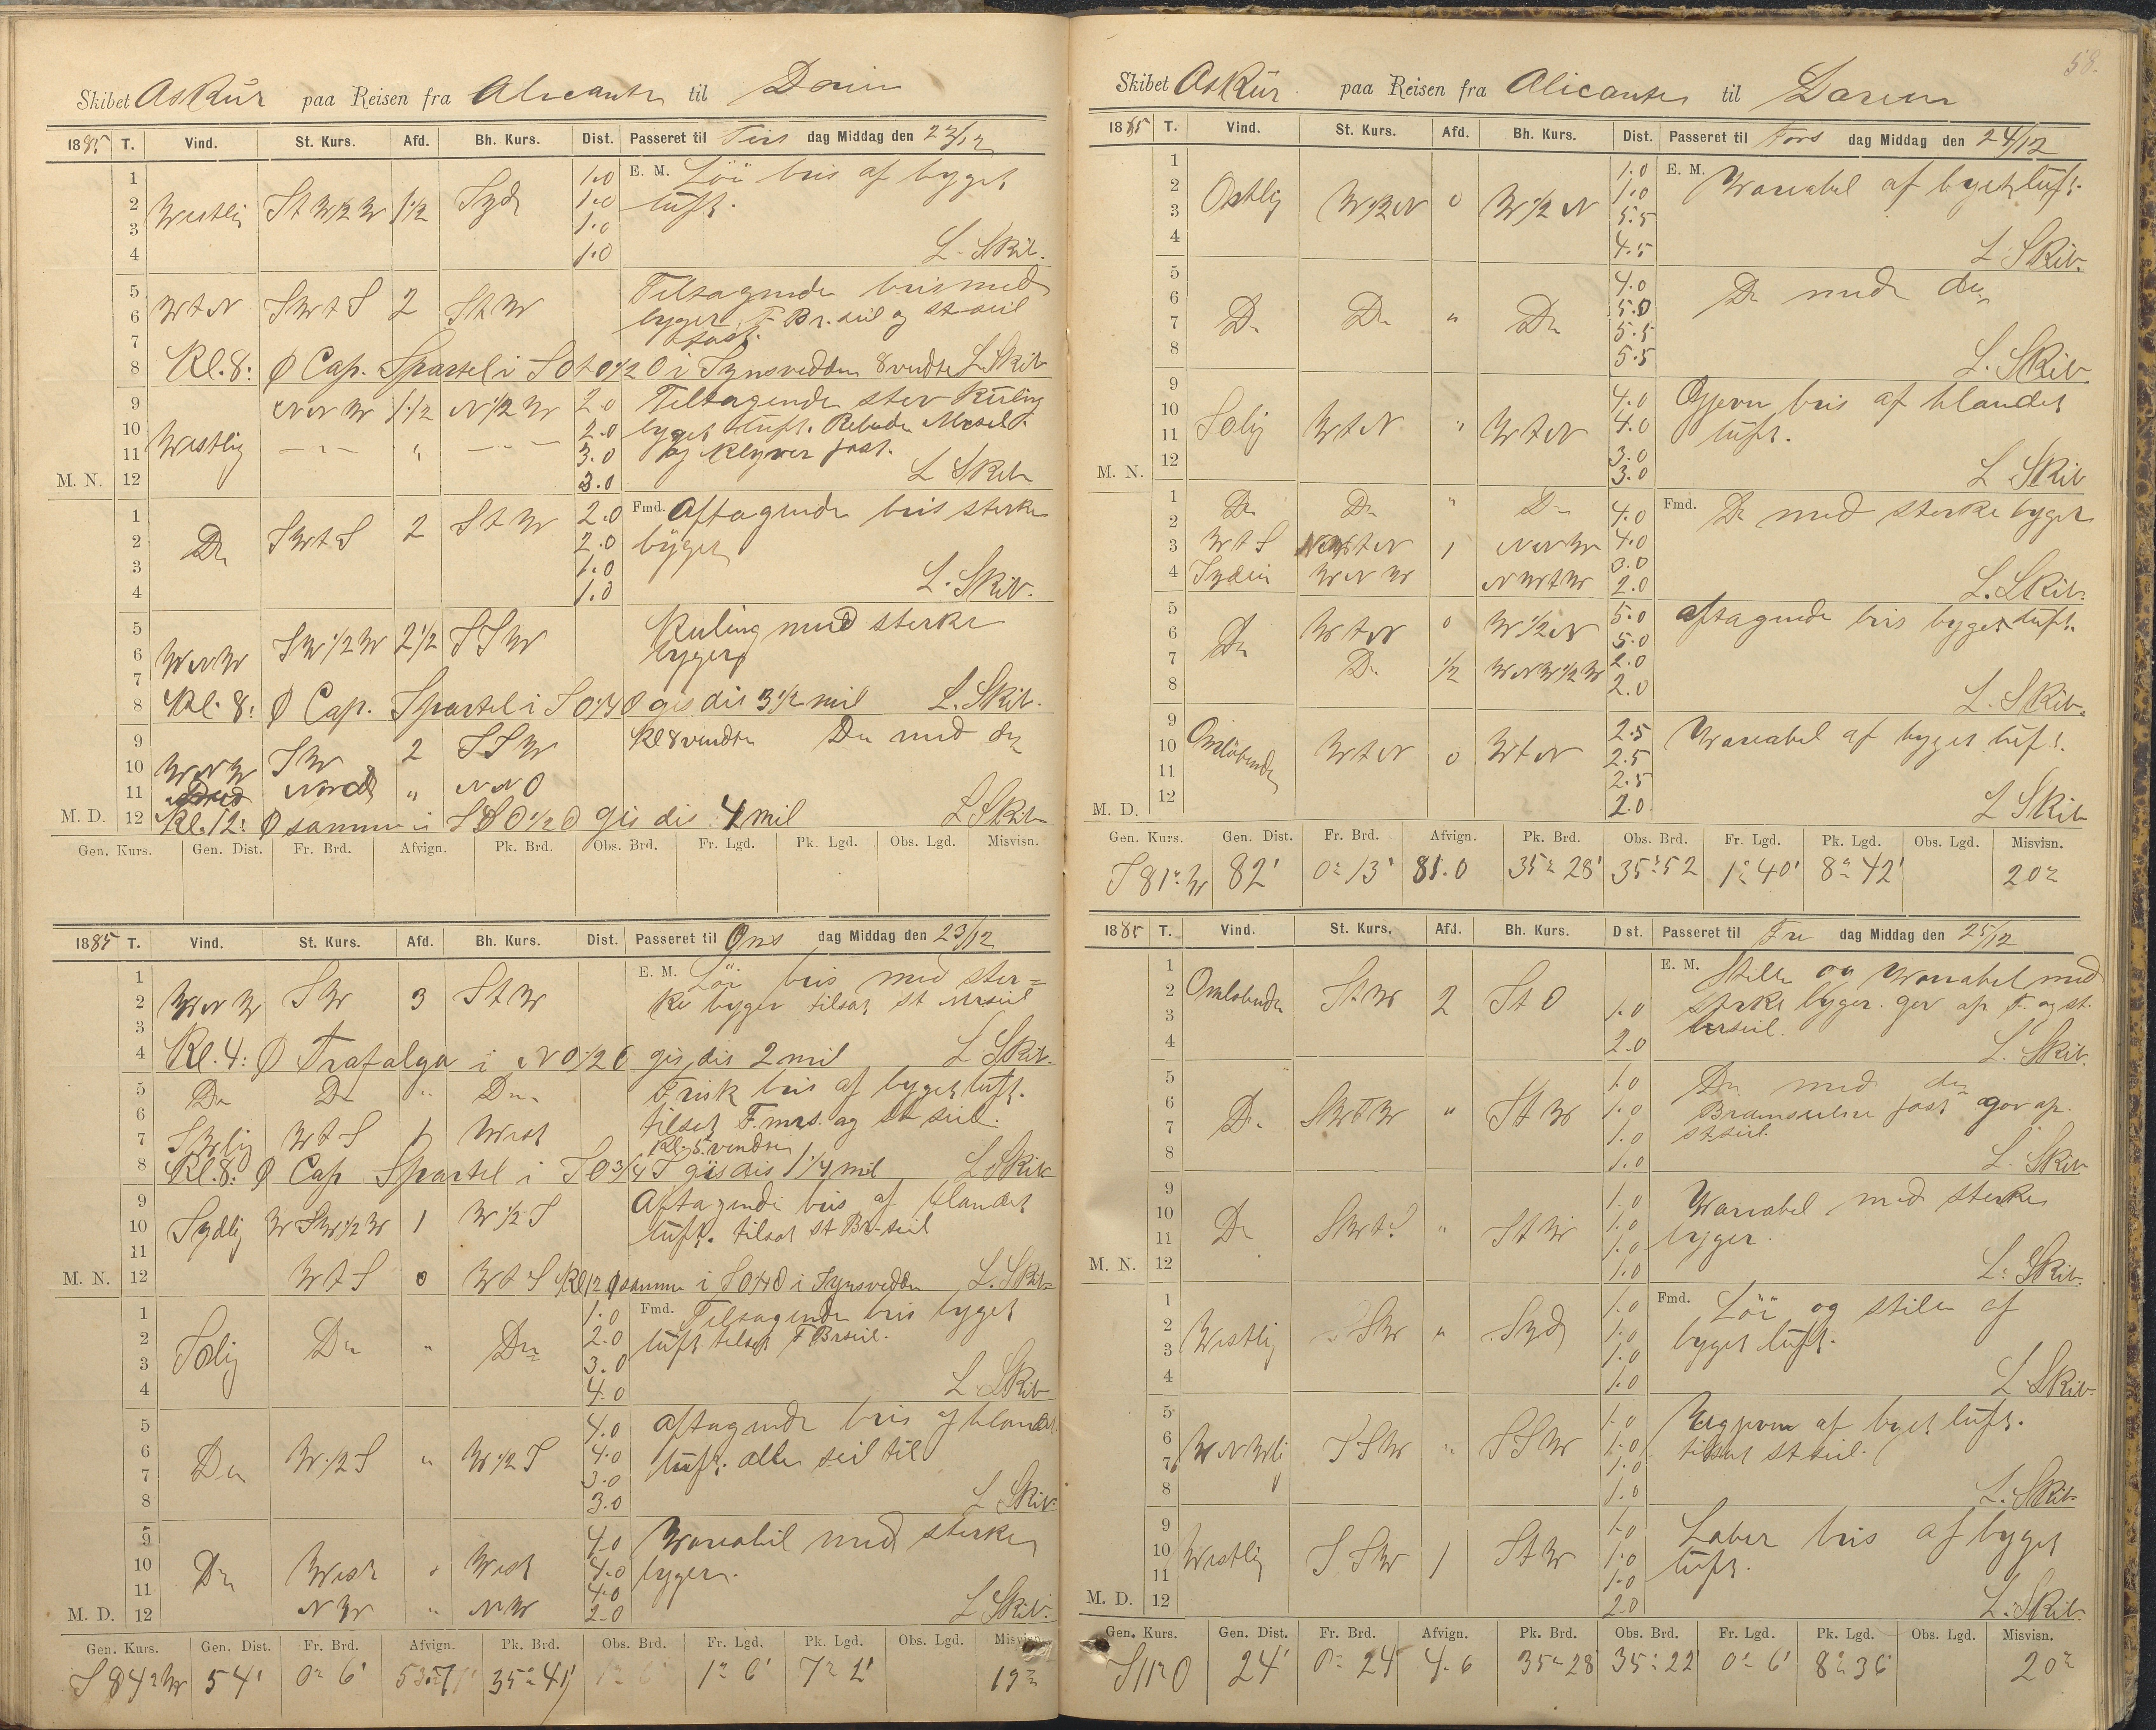 Skibet Askur paa Reisen fra Alicante til
1885 T. Vind. St. Kurs. Afd. Bh. Kurs. Dist. Passeret til Tirs dag Middag den
1 1.0 E. M. Löi bris af byget
2 Westlig St W 1/2 W 1 1/2 Syd 1.0 luft.
3 1.0
4 1.0 L. Skib.
5 Tiltagende bris med
6 W t N SW t S 2 S t W byger. F. Br. seil og st seil
7 fast.
8 Kl. 8: Ø Cap. Spartel i SO t O 1/2 O i Synsvidden 8 vendte L. Skib
9 NNW 1 1/2 N 1/2 W 2.0 Tiltagende stiv Kuling
10 Westlig 2.0 byget luft.
11 " 3.0 og Klyver fast.
M. N. 12 3.0 L Skib
1 2.0 Fmd. Aftagende bris sterke
2 Do SW t S 2 S t W 2.0 byger
3 1.0
4 1.0 L. Skib.
5 Kuling med sterke
6 WNW SW 1/2 W 2 1/2 SSW byger
7
8 Kl. 8: Ø Cap. Spartel i gis dis 3 1/2 mil L. Skib.
9 Kl 8 vendte Do med do
10 WNW SW 2 SSW
11 Nord " NNO
M. D. 12 Kl. 12: Ø samme i gis dis 4 mil L Skib
Gen. Kurs. Gen. Dist. Fr. Brd. Afvign. Pk. Brd. Obs. Brd. Fr. Lgd. Pk. Lgd. Obs. Lgd. Misvisn.
1885 T. Vind. St. Kurs. Afd. Bh. Kurs. Dist. Passeret til Ons dag Middag den 23/12
1 E. M. Löi bris med ster=
2 WNW SW 3 S t W ke byger tilsat st
3
4 Kl. 4: Ø Trafalga i NO 1/2 O gis dis 2 mil L Skib.
5 Do Do " Do Frisk bris af byget luft.
6 tilsat F. mrs. og st seil.
7 SWlig W t S 1 West Kl. 5 vendte
8 Kl. 8: Ø Cap Spartel i SO 3/4 S gis dis 1 1/4 mil L Skib
9 Aftagende bris af blandet
10 Sydlig WSW 1/2 W 1 W 1/2 S luft. tilsat st Br. seil
11
M. N. 12 W t S 0 W t S Kl 12 Ø samme i i Synsvidden L. Skib
1 1.0 Fmd. Tiltagende bris byget
2 SOlig Do " Do 2.0 luft tilsat F Brseil.
3 3.0
4 4.0 L Skib
5 4.0 Aftagende bris af blandet
6 Do W 1/2 S " W 1/2 S 4.0 luft. alle seil til
7 3.0
8 3.0 L Skib
9 4.0 Wariabil med sterke
10 Do West " West 4.0 byger.
11 4.0
M. D. 12 NW " NW 2.0 L Skib.
Gen. Kurs. Gen. Dist. Fr. Brd. Afvign. Pk. Brd. Obs. Brd. Fr. Lgd. Pk. Lgd. Obs. Lgd. Misvisn.
S 84° W 54' 0° 6' 35° 41' 1° 6' 19°
58.
Skibet Askur paa Reisen fra Alicante til
1885 T. Vind. St. Kurs. Afd. Bh. Kurs. Dist. Passeret til Tors dag Middag den 24/12
1 1.0 E. M. Wariabel af byget luft.
2 Ostlig W 1/2 N 0 W 1/2 N 1.0
3 5.5
4 4.5 L Skib.
5 4.0 Do med do
6 5.0
7 Do Do " Do 5.5
8 5.5 L. Skib.
9 4.0 Ojevn bris af blandet
10 SOlig W t N " W t N 4.0 luft.
11 3.0
M. N. 12 3.0 L Skib
1 Do Do " Do 4.0 Fmd. Do med sterke byger
2 4.0
3 W t S 1 NNW 3.0
4 WNW NW t W 2.0 L. Skib.
5 W t N 0 W 1/2 N 5.0 aftagende bris byget luft.
6 Do 5.0
7 Do 1/2 WNW 1/2 W 2.0
8 2.0 L. Skib.
9 2.5 Wariabel af byget luft.
10 Omlöbende W t N 0 W t N 2.5
11 2.5
M. D. 12 2.0 L Skib
Gen. Kurs. Gen. Dist. Fr. Brd. Afvign. Pk. Brd. Obs. Brd. Fr. Lgd. Pk. Lgd. Obs. Lgd. Misvisn.
S 81° W 82' 0° 13' 81.0 35° 28' 35° 52 1° 40' 8° 42' 20°
1885 T. Vind. St. Kurs. Afd. Bh. Kurs. Dist. Passeret til Fre dag Middag den 25/12
1 E. M. Stille og Wariabel med
2 Omlobende St W 2 St O 1.0 sterke byger. gov ap F. og st.
3
4 2.0 L. Skib.
5 1.0 Do med do
6 Do " St W 1.0 Bramseilene fast gov ap.
7 1.0 st seil.
8 1.0 L. Skib
9 1.0 Wariabel med sterke
10 Do SW t S " St W 1.0 byger.
11 1.0
M. N. 12 1.0 L. Skib.
1 1.0 Fmd. Löi og stille af
2 Westlig SW " Syd 1.0 byget luft.
3 1.0
4 1.0 L Skib.
5 1.0 af byget luft.
6 WNWli SSW " SSW 1.0 tilsat st seil.
7 1.0
8 1.0 L. Skib
9 1.0 Laber bris af byget
10 Westlig SSW 1 St W 1.0 luft.
11 1.0
M. D. 12 2.0 L. Skib.
Gen. Kurs. Gen. Dist. Fr. Brd. Afvign. Pk. Brd. Obs. Brd. Fr. Lgd. Pk. Lgd. Obs. Lgd. Misvisn.
S 11° O 24' 0° 24' 4.6 35° 28 35° 22' 0° 6' 8° 36 20°